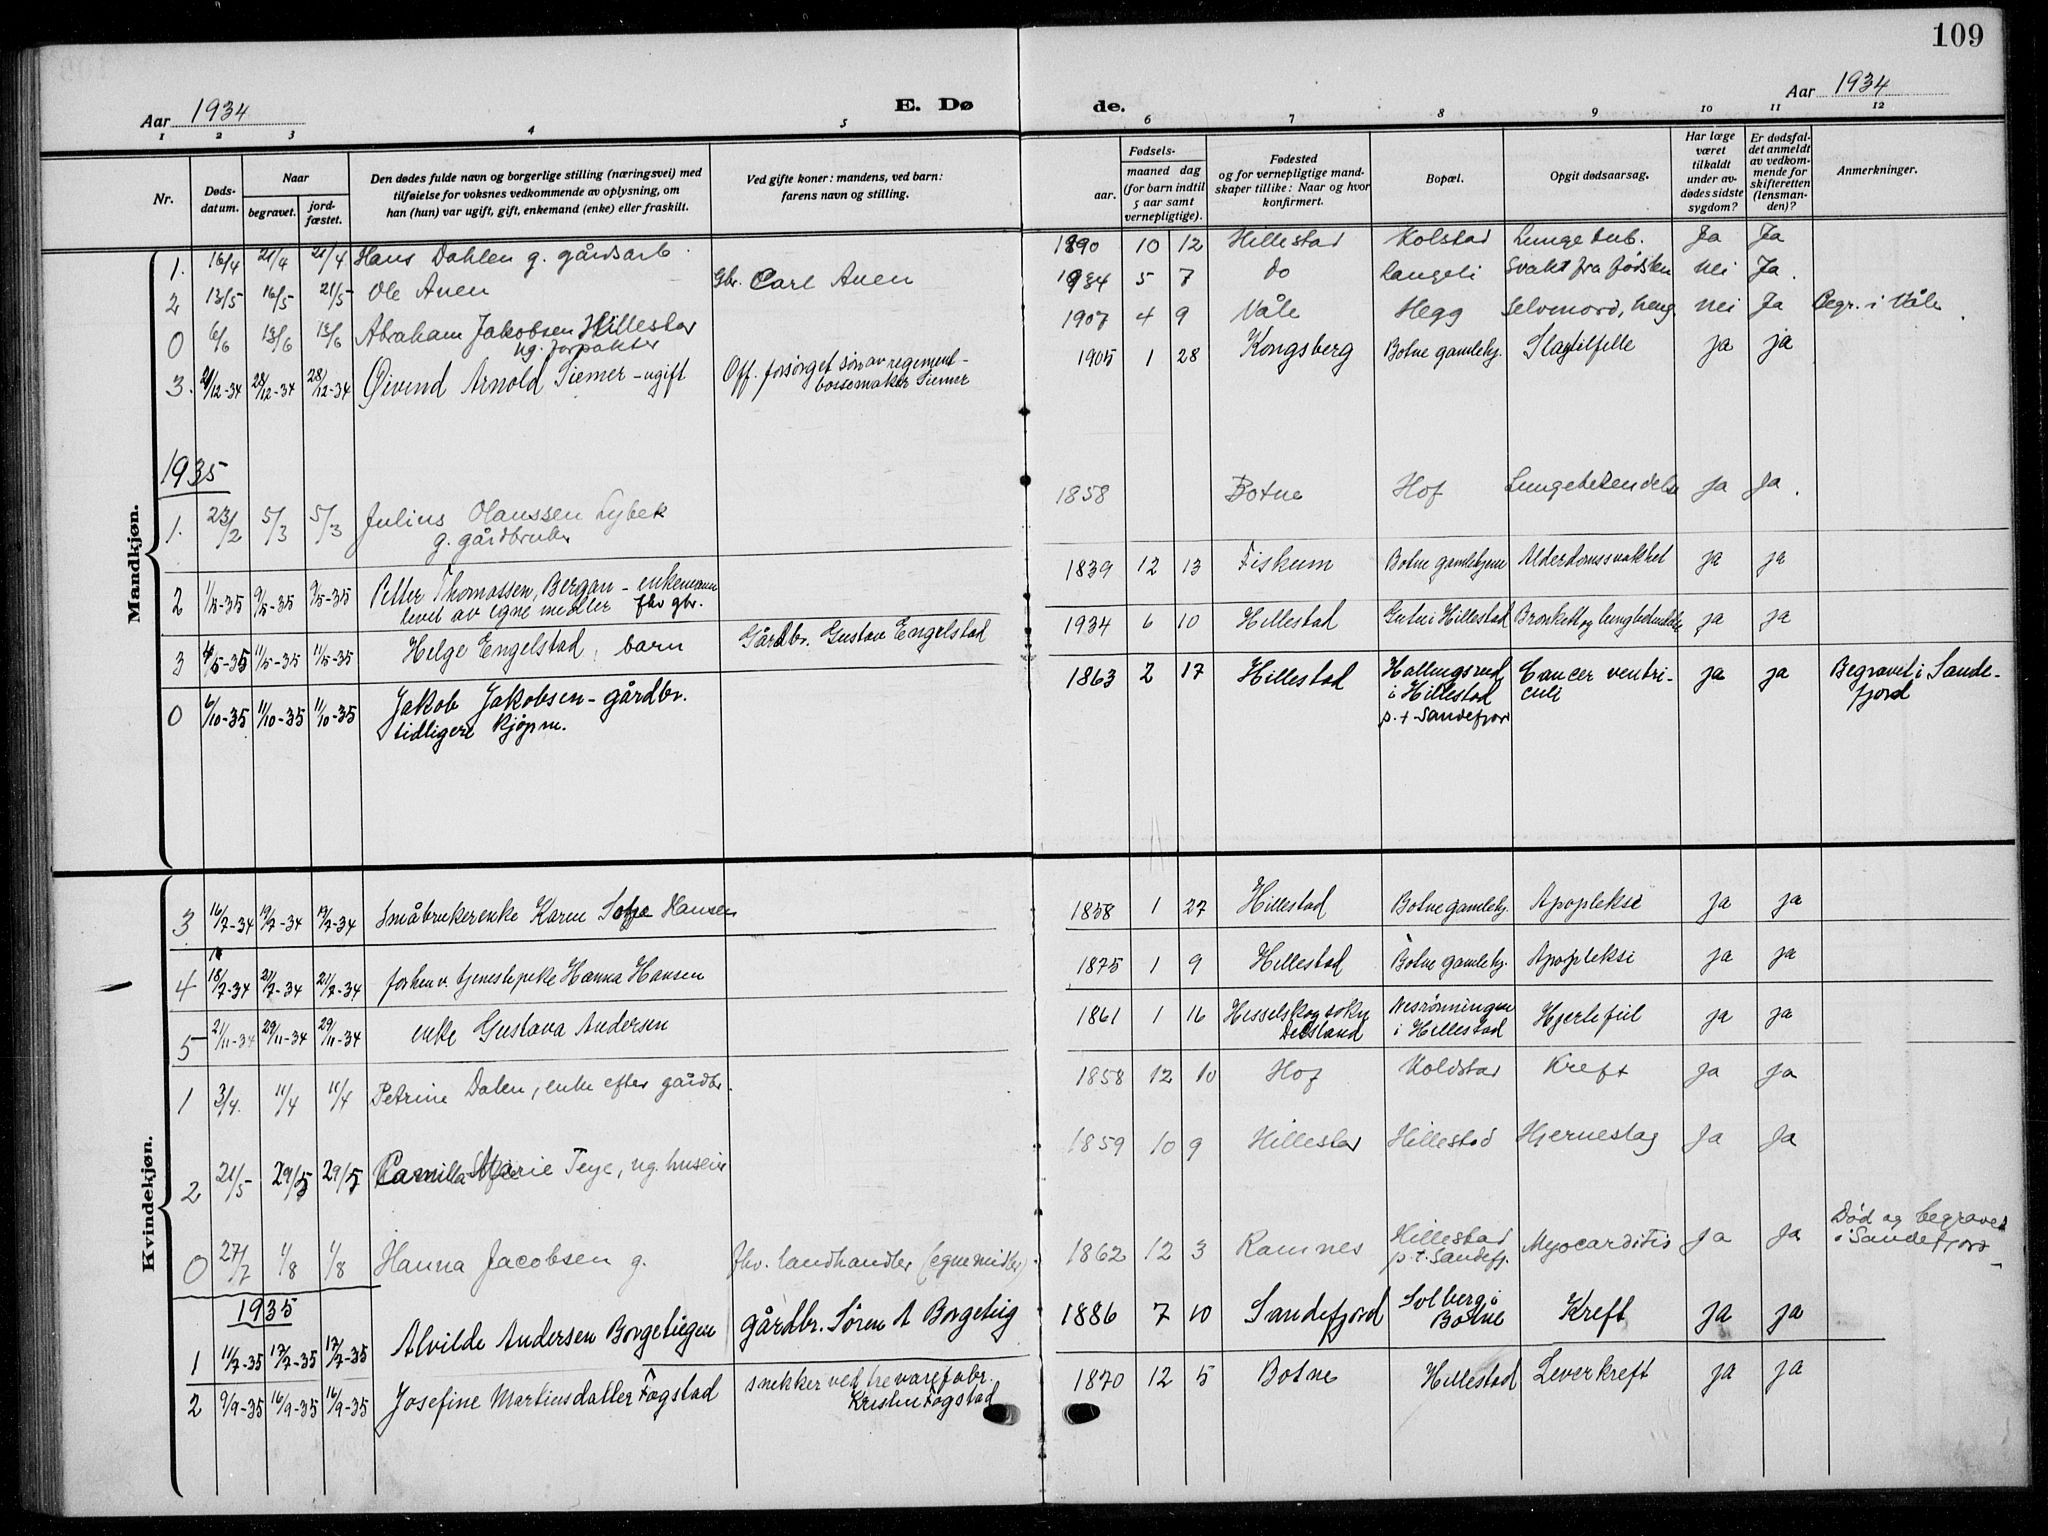 109
Aar 1934
E. Dø
de.
Aar 1934
1 2 3 4 5 6 7 8 9 10 11 12
Nr.
Døds-
datum.
Naar
begravet.
jord-
fæstet.
Den dødes fulde navn og borgerlige stilling (næringsvei) med
tilføielse for voksnes vedkommende av oplysning, om
han (hun) var ugift, gift, enkemand (enke) eller fraskilt.
Ved gifte koner: mandens, ved barn:
farens navn og stilling.
Fødsels-
aar.
maaned dag
(for barn indtil
5 aar samt
vernepligtige).
Fødested
og for vernepligtige mand-
skaper tillike: Naar og hvor
konfirmert.
Bopæl.
Opgit dødsaarsag.
Har læge
været
tilkaldt
under av-
dødes sidste
sygdom?
Er dødsfal-
det anmeldt
av vedkom-
mende for
skifteretten
(lensman-
den)?
Anmerkninger.
Mandkjøn.
1. 16/4 21/4 21/4 Hans Dahlen g. gårdsarb. 1890 10 12 Hillestad Kolstad Lungetub. Ja Ja
2 13/5 16/5 21/5 Ole Auen Gbr. Carl Auen 1934 5 7 do Langeli Svakt fra fødslen nei Ja.
0 6/6 13/6 13/6 Abraham Jakobsen Hillestad
ug. forpakter 1907 4 9 Våle Hegg Selvmord, heng. nei Ja Begr. i Våle
3. 21/12-34 28/12-34 28/12-34 Øivind Arnold Siemer - ugift Off. forsørget søn av regiment-
bøssemaker Siemer 1905 1 28 Kongsberg Botne gamlehj. Slagtilfelle ja ja
1935
1. 23/2 5/3 5/3 Julius Olaussen Lybek
g. gårdbruker 1858 Botne Hof Lungebetendelse Ja Ja.
2 1/5-35 9/5-35 9/5-35 Petter Thomassen, Bergan - enkemann
levet av egne midler fhv gbr. 1839 12 13 Fiskum Botne gamlehjem Alderdomssvakhet ja ja
3 4/5-35 11/5-35 11/5-35 Helge Engelstad, barn Gårdbr. Gustav Engelstad 1934 6 10 Hillestad Gutu i Hillestad Bronkitt og lungebetendelse ja ja
0 6/10-35 11/10-35 11/10-35 Jakob Jakobsen - gårdbr.
tidligere kjøpm. 1863 2 17 Hillestad Hallingsrud
i Hillestad
p.t Sandefjord Cancer ventri-
culi ja ja Begravet i Sande-
fjord
Kvindekjøn.
3 16/7-34 19/7-34 19/7-34 Småbrukerenke Karen Hansen 1858 1 27 Hillestad Botne gamlehj. Apopleksi ja ja
4 18/7-34 21/7-34 21/7-34 forhenv. tjenestepike Hanna Hansen 1875 1 9 Hillestad Botne gamlehj. Apopleksi ja ja
5 21/11-34 29/11-34 29/11-34 enke Gustava Andersen 1861 1 16 Hesselskog sokn
Dalsland Nesrønningen
i Hillestad Hjertefeil ja ja
1 3/4. 11/4 11/4 Petrine Dalen, enke efter gårdbr. 1858 12 10 Hof Koldstad Kreft Ja Ja
2 21/5 29/5 29/5 Camilla Marie Teye, ug. 1859 10 9 Hillestad Hillestad Hjerneslag Ja Ja
0 27/7 1/8 1/8 Hanna Jacobsen g. fhv. landhandler (egne midler). 1862 12 3 Ramnes Hillestad
p.t. Sandefj. Myocarditis Ja Ja Død og begravet
i Sandefjord
1935
1 11/7-35 17/7-35 17/7-35 Alvilde Andersen Borgetiegen gårdbr. Søren A Borgetiig 1886 7 10 Sandefjord Solberg i
Botne Kreft ja ja
2 9/9-35 16/9-35 16/9-35 Josefine Martinsdatter Fogstad snekker ved trevarefabr.
Kristen Fogstad 1870 12 5 Botne Hillestad Leverkreft ja ja